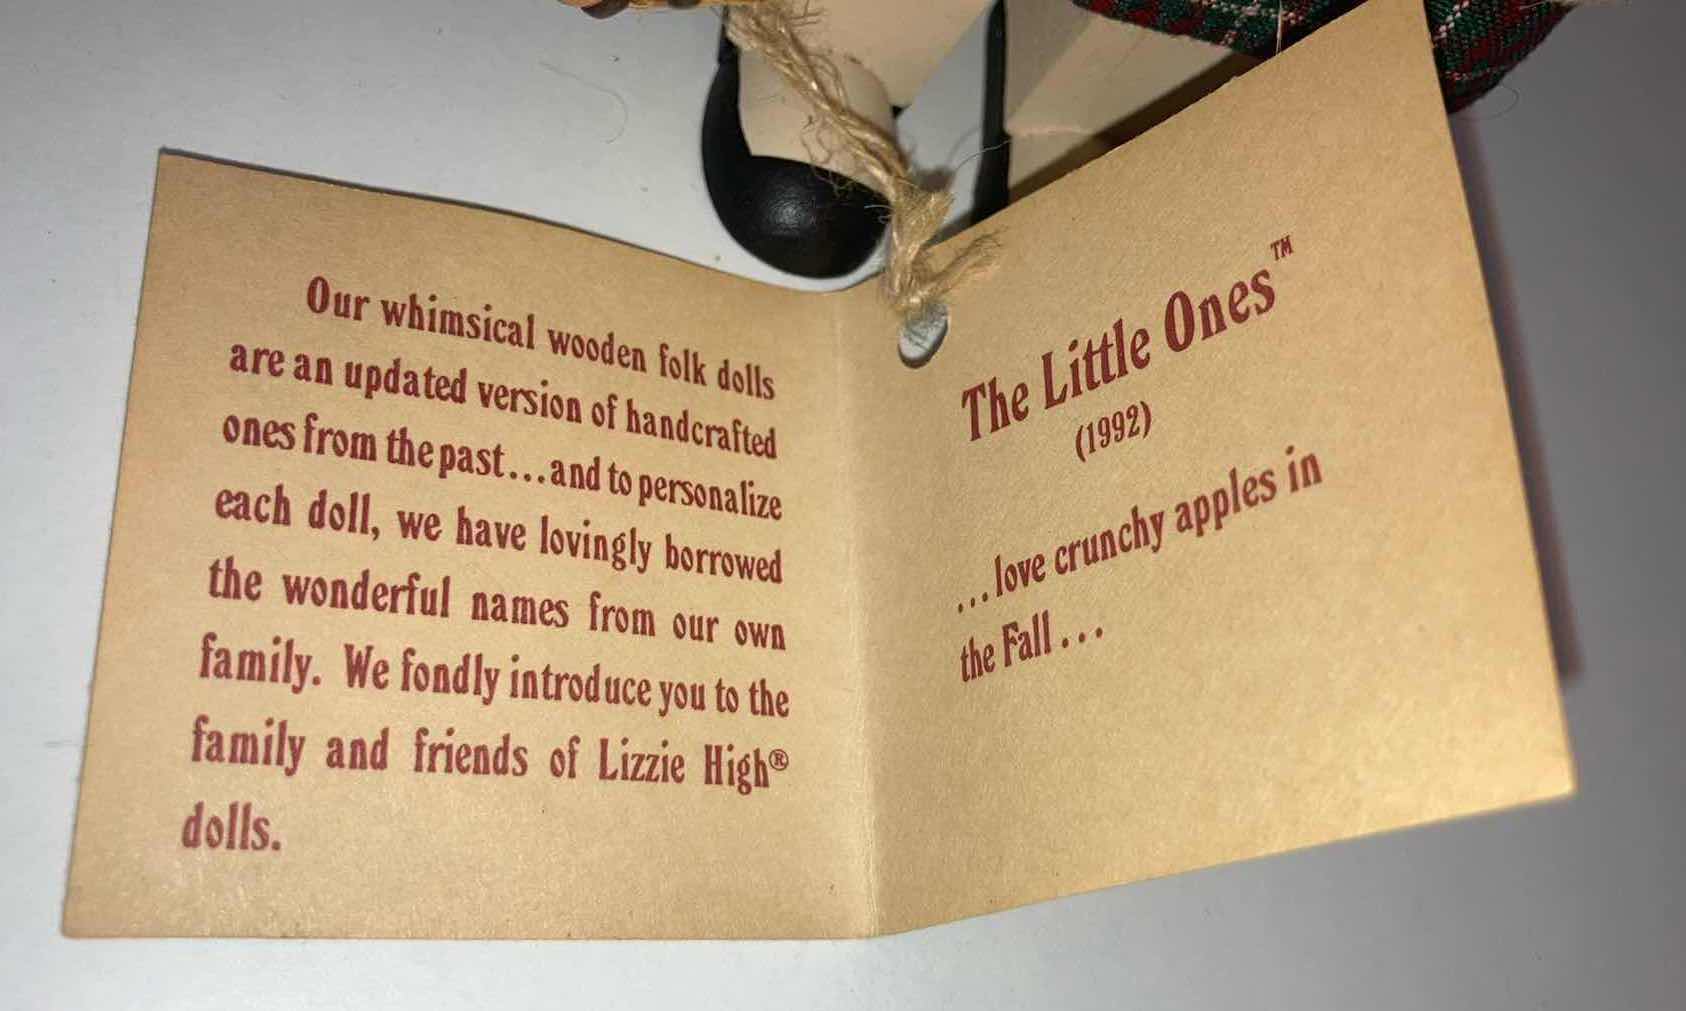 Our whimsical wooden folk dolls
are an updated version of handcrafted
ones from the past...and to personalize
each doll, we have lovingly borrowed
the wonderful names from our own
family. We fondly introduce you to the
family and friends of Lizzie High®
dolls.
The Little Ones™
(1992)
...love crunchy apples in
the Fall...